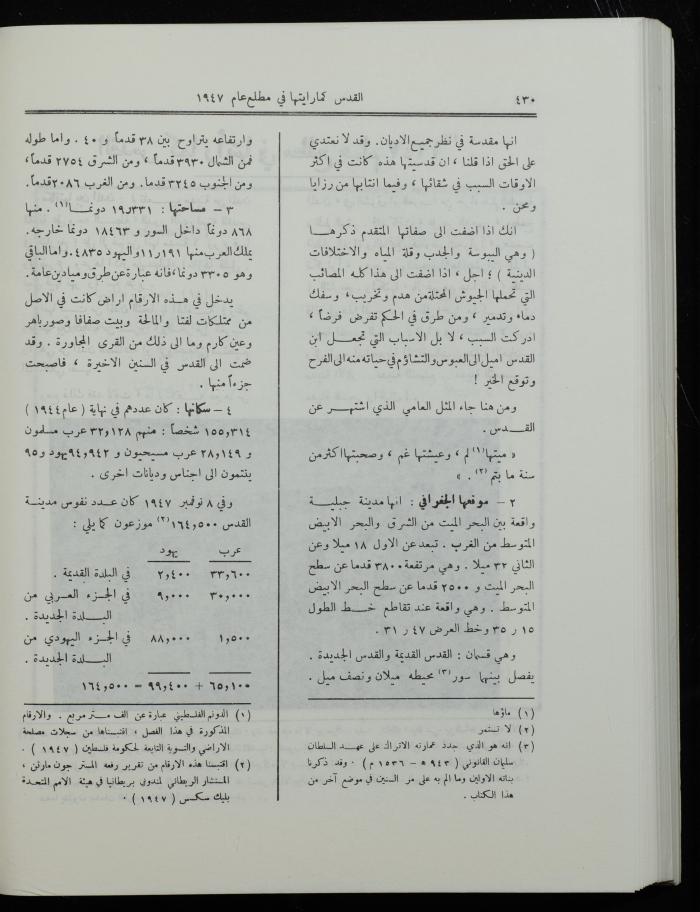 ٤٣٠
القدس كما رايتها في مطلع عام ١٩٤٧
انها مقدسة في نظر جميع الاديان. وقد لا نعتدي
على الحق اذا قلنا ، ان قدسيتها هذه كانت في اكثر
الاوقات السبب في شقائها ، وفيما انتابها من رزايا
ومحن .
انك اذا اضفت الى صفاتها المتقدم ذكرها
( وهي اليبوسة والجدب وقلة المياه والاختلافات
الدينية ) ؛ اجل ، اذا اضفت الى هذا كله المصائب
التي تحملها الجيوش المحتلة من هدم وتخريب، وسفك
دماء وتدمير ، ومن طرق في الحكم تفرض فرضاً ،
ادركت السبب ، لا بل الاسباب التي تجعل ابن
القدس اميل الى العبوس والتشاؤم في حياته منه الى الفرح
وتوقع الخير !
ومن هنا جاء المثل العامي الذي اشتهر عن
القدس .
« ميتها(١) لم ، وعيشتها غم ، وصحبتها اكثر من
سنة ما بتم(٢) . »
٢ – موقعها الجغرافي : انها مدينة جبلية
واقعة بين البحر الميت من الشرق والبحر الابيض
المتوسط من الغرب . تبعد عن الاول ١٨ ميلا وعن
الثاني ٣٢ ميلا . وهي مرتفعة ٣٨٠٠ قدما عن سطح
البحر الميت و ٢٥٠٠ قدما عن سطح البحر الابيض
المتوسط . وهي واقعة عند تقاطع خط الطول
١٥ ر ٣٥ وخط العرض ٤٧ ر ٣١ .
وهي قسمان : القدس القديمة والقدس الجديدة .
يفصل بينهما سور(٣) محيطه ميلان ونصف ميل .
(١) ماؤها
(٢) لا تستمر
(٣) انه هو الذي جدد عمارته الاتراك على عهد السلطان
سليمان القانوني ( ٩٤٣ ه – ١٥٣٦ م ) . وقد ذكرنا
بناته الاولين وما الم به على مر السنين في موضع آخر من
هذا الكتاب .
وارتفاعه يتراوح بين ٣٨ قدماً و ٤٠ . واما طوله
فمن الشمال ٣٩٣٠ قدماً ، ومن الشرق ٢٧٥٤ قدماً،
ومن الجنوب ٣٢٤٥ قدما. ومن الغرب ٢٠٨٦ قدماً.
٣ – مساحتها : ١٩٫٣٣١ دونما(١) . منها
٨٦٨ دونماً داخل السور و ١٨٤٦٣ دونما خارجه.
يملك العرب منها ١١٫١٩١ واليهود ٤٨٣٥. واما الباقي
وهو ٣٣٠٥ دونما، فانه عبارة عن طرق وميادين عامة.
يدخل في هذه الارقام اراض كانت في الاصل
من ممتلكات لفتا والمالحة وبيت صفافا وصور باهر
وعين كارم وما الى ذلك من القرى المجاورة . وقد
ضمت الى القدس في السنين الاخيرة ، فاصبحت
جزءاً منها .
٤ – سكانها : كان عددهم في نهاية ( عام ١٩٤٤ )
١٥٥,٣١٤ شخصاً : منهم ٣٢,١٢٨ عرب مسلمون
و ٢٨,١٤٩ عرب مسيحيون و ٩٤,٩٤٢ يهود و ٩٥
ينتمون الى اجناس وديانات اخرى .
وفي ٨ نوفمبر ١٩٤٧ كان عدد نفوس مدينة
القدس ١٦٤,٥٠٠(٢) موزعون كما يلي :
عرب يهود
٣٣,٦٠٠ ٢,٤٠٠ في البلدة القديمة .
٣٠,٠٠٠ ٩,٠٠٠ في الجزء العربي من
البلدة الجديدة .
١,٥٠٠ ٨٨,٠٠٠ في الجزء اليهودي من
البلدة الجديدة .
٦٥,١٠٠ + ٩٩,٤٠٠ = ١٦٤,٥٠٠
(١) الدونم الفلسطيني عبارة عن الف متر مربع . والارقام
المذكورة في هذا الفصل ، اقتبسناها من سجلات مصلحة
الاراضي والتسوية التابعة لحكومة فلسطين ( ١٩٤٧ ) .
(٢) اقتبسنا هذه الارقام من تقرير رفعه المستر جون مارتن ،
المستشار البريطاني لمندوبي بريطانيا في هيئة الامم المتحدة
بليك سكسس ( ١٩٤٧ ) .